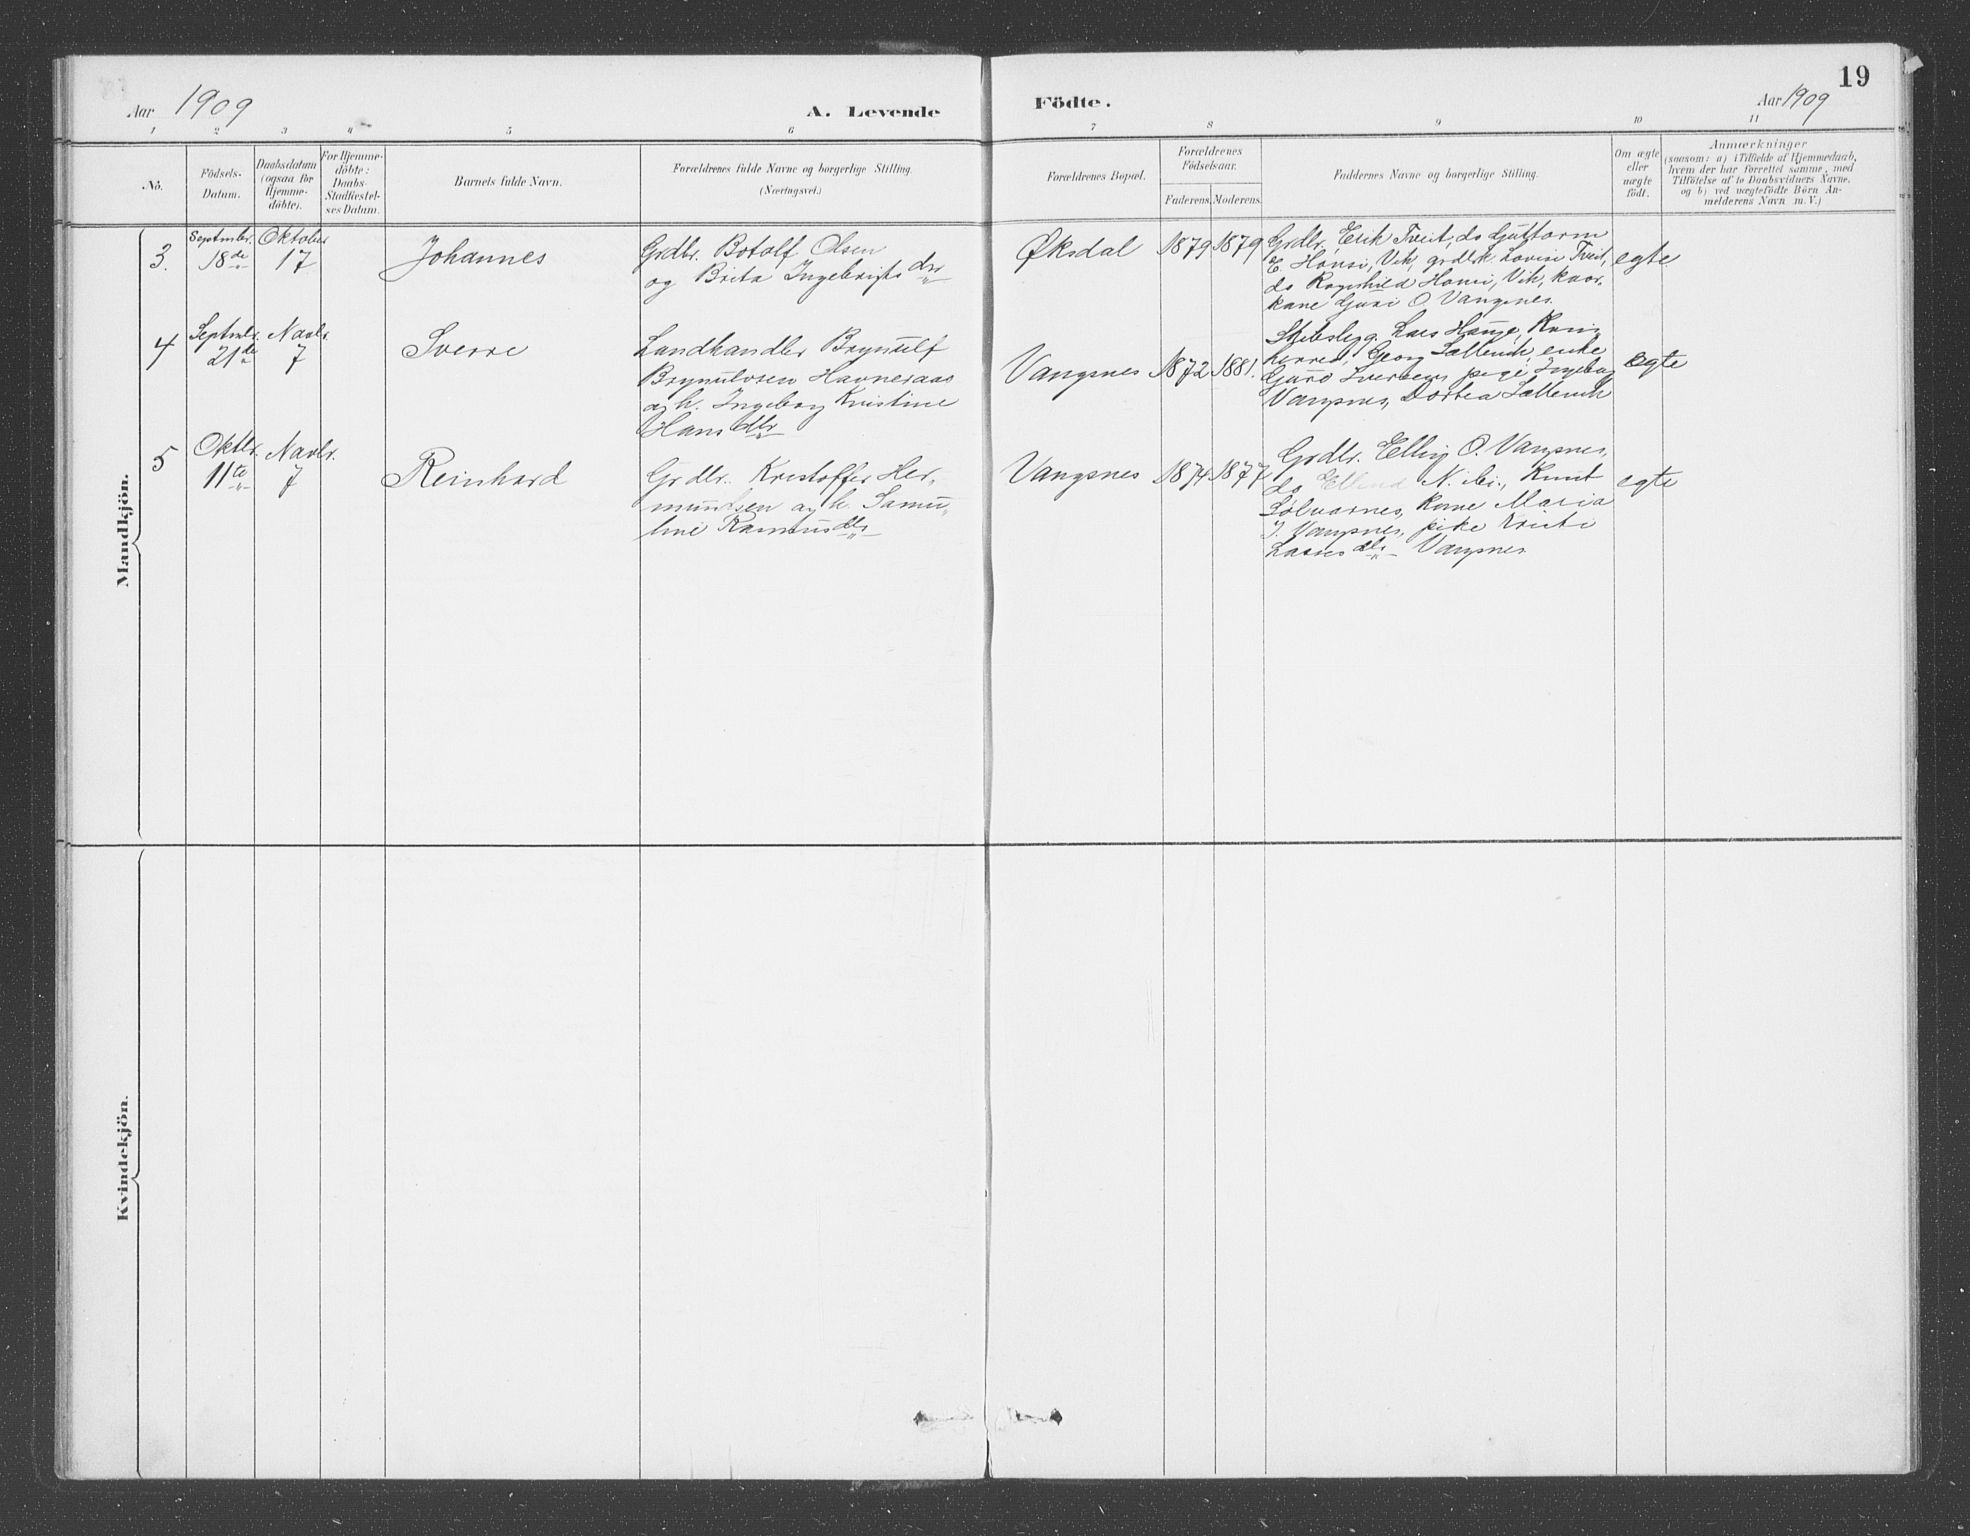 19
Aar 1909
A. Levende
Födte.
Aar 1909
1 2 3 4 5 6 7 8 9 10 11
No.
Födsels-
Datum.
Daabsdatum
(ogsaa for
Hjemme-
döbte).
For Hjemme-
döbte:
Daabs-
Stadfæstel-
ses Datum.
Barnets fulde Navn.
Forældrenes fulde Navne og borgerlige Stilling.
(Næringsvei.)
Forældrenes Bopæl.
Forældrenes
Födselsaar.
Faderens. Moderens.
Faddernes Navne og borgerlige Stilling.
Om ægte
eller
uægte
födt.
Anmærkninger
(saasom: a) i Tilfælde af Hjemmedaab,
hvem der har forrettet samme, med
Tilföielse af to Daabsvidners Navne,
og b) ved uægtefödte Börn An-
melderens Navn m. V.)
Mandkjön.
3.
September
18de
Oktober
17
Johannes
Grdbr. Botolf Olsen
og Brita Ingebrigtsdtr
Øksdal
1879
1879
Grdbr. Erik Tveit, do Guttorm
E. Hønsi, Vik, grdbrk. Lovise Tveit,
do Ragnhild Hønsi, Vik, kaar-
kone Guri O. Vangsnes
egte
4
Septmbr.
21de
Novbr.
7
Sverre
Landhandler Brynulf
Brynulvsen Havneraas
og h. Ingeborg Kristine
Hansdtr
Vangsnes
1872
1881.
Lars Hauge,
Georg Sællevik, enke
Guro Iversen, pige Ingeborg
Vangsnes, Dortea Sællevik
egte
5
Oktbr.
11te
Novbr.
7
Reinhard
Grdbr. Kristoffer Her-
mundsen og h. Samu-
line Rasmusdtr
Vangsnes
1874
1877
Grdbr. Elling O. Vangsnes,
do Ellend N. ibi., Knut
Sølvarnes, Kone Maria
J. Vangsnes, pike Kristi
Lassesdtr Vangsnes
egte
Kvindekjön.